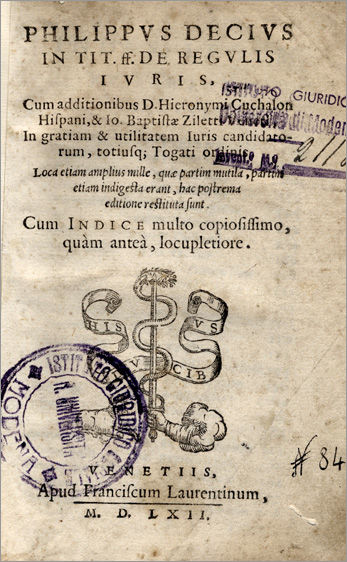 PHILIPPVS DECIVS
IN TIT. ff. DE REGVLIS
IVRIS,
Cum additionibus D. Hieronymi Cuchalon
Hispani, & Io. Baptistæ Ziletti Veneti,
In gratiam & utilitatem Iuris candidato-
rum, totiusq; Togati ordinis.
Loca etiam amplius mille, quæ partim mutila, partim
etiam indigesta erant, hac postrema
editione restituta sunt.
Cum INDICE multo copiosissimo,
quàm anteà, locupletiore.
ISTITUTO GIURIDICO
di Moden
Invent. N.
2118
HIS
VS
CIB
ISTITUTO GIURIDICO
R. UNIVERSITÀ
MODE
# 84
VENETIIS,
Apud Franciscum Laurentinum,
M. D. LXII.